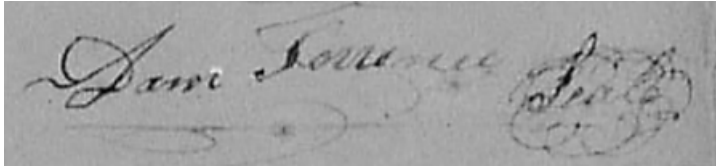 Adam Torrence Seal